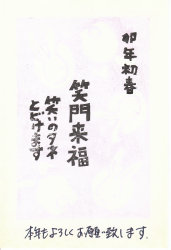 卯年初春
笑門来福
笑いのタネ
とどけます
本年もよろしくお願い致します。